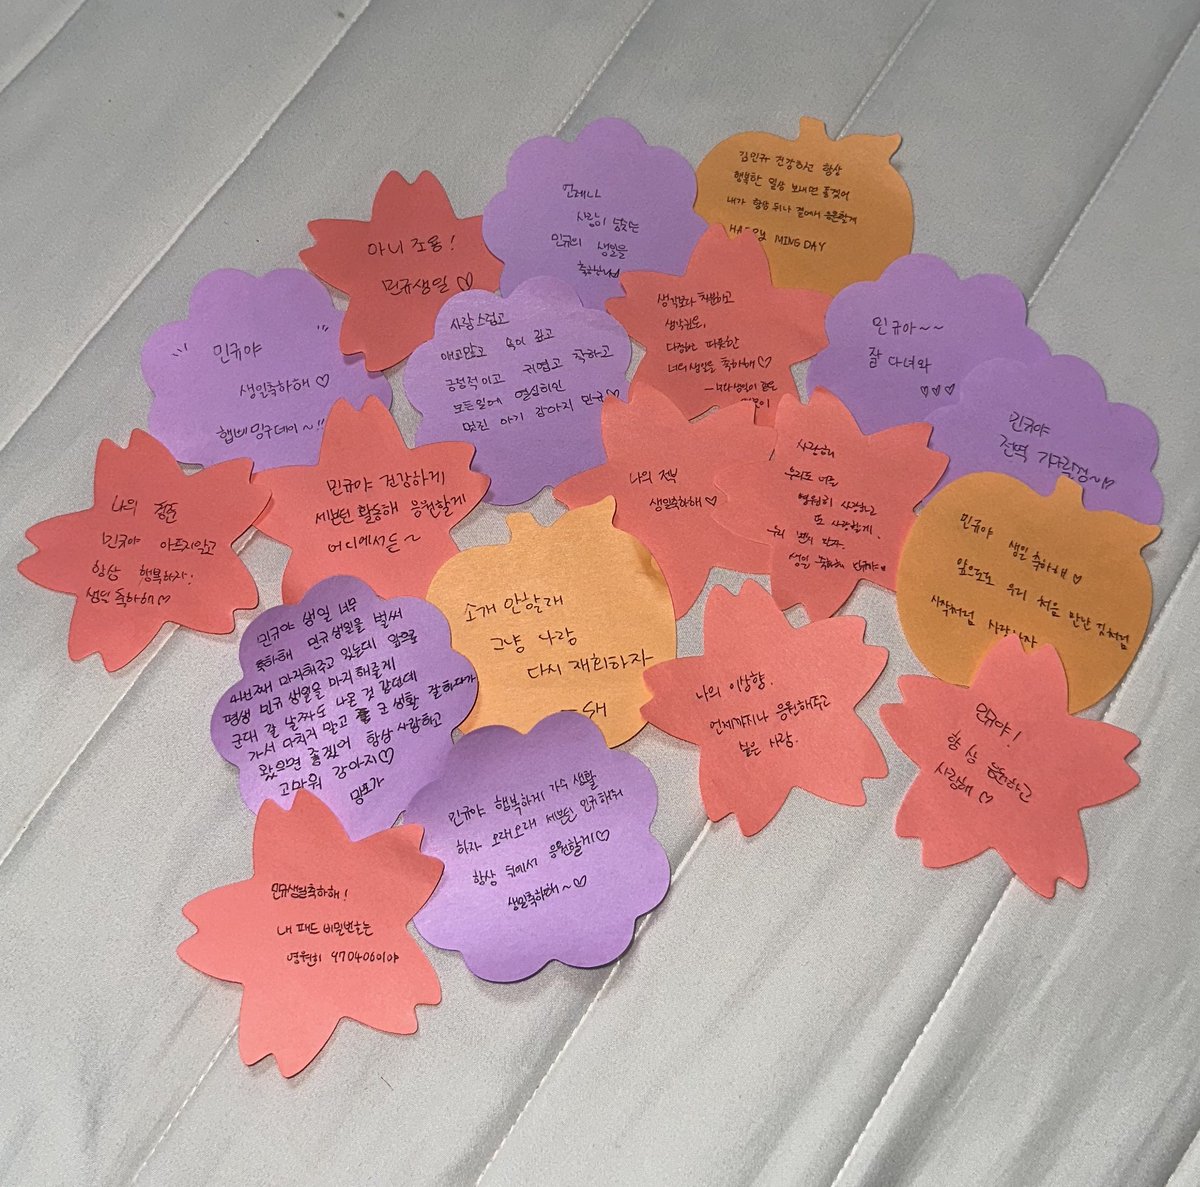 아니 조용!
민규생일 ♡
언제나
사랑이 넘치는
민규의 생일을
축하한다
김민규 건강하고 항상
행복한 일상 보내면 좋겠어
내가 항상 뒤나 곁에서 응원할게
HAPPY MING DAY
민규야
생일축하해 ♡
햅삐밍구데이~!!
사랑스럽고
애교많고 속이 깊고
긍정적이고 귀엽고 착하고
모든일에 열심히인
멋진 아기 강아지 민규♡
생각보다 차분하고
생각깊은,
다정하고 따뜻한
너의생일을 축하해♡
민규아~~
잘 다녀와
♡♡♡
민규야
전역 기다릴껭~♡
나의 청춘
민규야 아프지않고
항상 행복하자!
생일축하해♡
민규야 건강하게
세븐틴 활동해 응원할게
어디에서든~
나의 전부
생일축하해♡
사랑해
우리도 너를
영원히 사랑하고
또 사랑할게.
우리
생일 축하해 민규야
민규야 생일 축하해♡
앞으로도 우리 처음 만난 것처럼
시작처럼 사랑하자
소개 안할래
그냥 나랑
다시 재회하자
민규야 생일 너무
축하해 민규생일을 벌써
4번째 마지해주고 있는데 앞으로
평생 민규 생일을 마지해줄게
군대 갈 날짜도 나온 것 같던데
가서 다치지 말고 군 생활 잘하다가
왔으면 좋겠어 항상 사랑하고
고마워 강아지♡
나의 이상향.
언제까지나 응원해주고
싶은 사람.
민규야!
항상 응원하고
사랑해 ♡
민규야 행복하게 가수 생활
하자 오래오래 세븐틴 민규해줘
항상 뒤에서 응원할게♡
생일축하해~♡
민규생일축하해!
내 패드 비밀번호는
영원히 970406이야